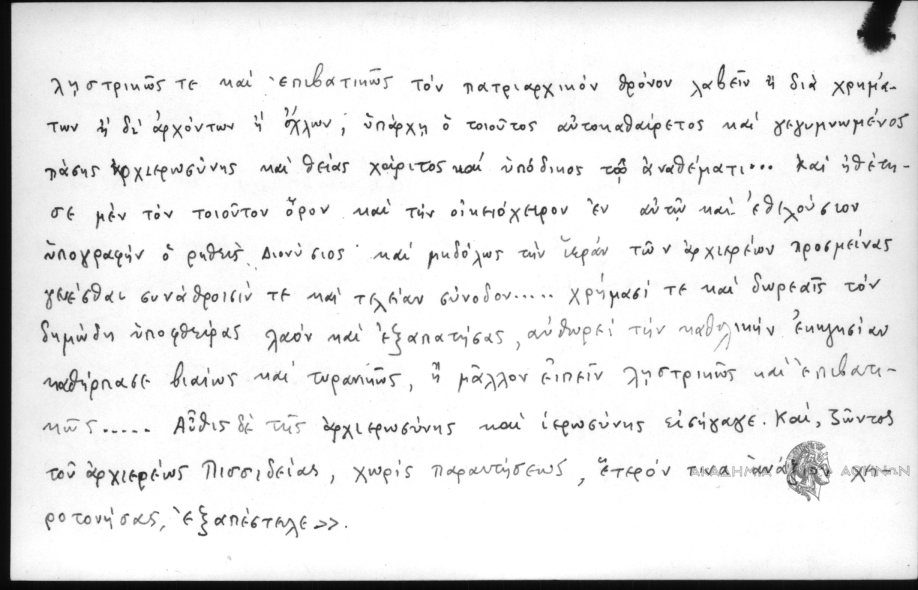 ληστρικῶς τε καί ἐπιβατικῶς τόν πατριαρχικόν θρόνον λαβεῖν ἤ διά χρημά-
των ἤ δι' ἀρχόντων ἤ ὄχλων, ὑπάρχῃ ὁ τοιοῦτος αὐτοκαθαίρετος καί γεγυμνωμένος
πάσης ἀρχιερωσύνης καί θείας χάριτος καί ὑπόδικος τῷ ἀναθέματι... Καί ἠθέτη-
σε μέν τόν τοιοῦτον ὅρον καί τήν οἰκειόχειρον ἐν αὐτῷ καί ἐθελούσιον
ὑπογραφήν ὁ ῥηθείς Διονύσιος καί μηδόλως τήν ἱεράν τῶν ἀρχιερέων προσμείνας
γενέσθαι συνάθροισίν τε καί τελείαν σύνοδον..... χρήμασί τε καί δωρεαῖς τόν
δημώδη ὑποφθείρας λαόν καί ἐξαπατήσας, αὐθωρεί τήν καθολικήν ἐκκλησίαν
καθήρπασε βιαίως καί τυραννικῶς, ἤ μᾶλλον εἰπεῖν ληστρικῶς καί ἐπιβατι-
κῶς..... Αὖθις δέ τῆς ἀρχιερωσύνης καί ἱερωσύνης εἰσήγαγε. Καί, ζῶντος
τοῦ ἀρχιερέως Πισσιδείας, χωρίς παραιτήσεως, ἕτερόν τινα ἀνάξιον χει-
ροτονήσας, ἐξαπέστειλε>>.
ΑΚΑΔΗΜΙΑ ΑΘΗΝΩΝ